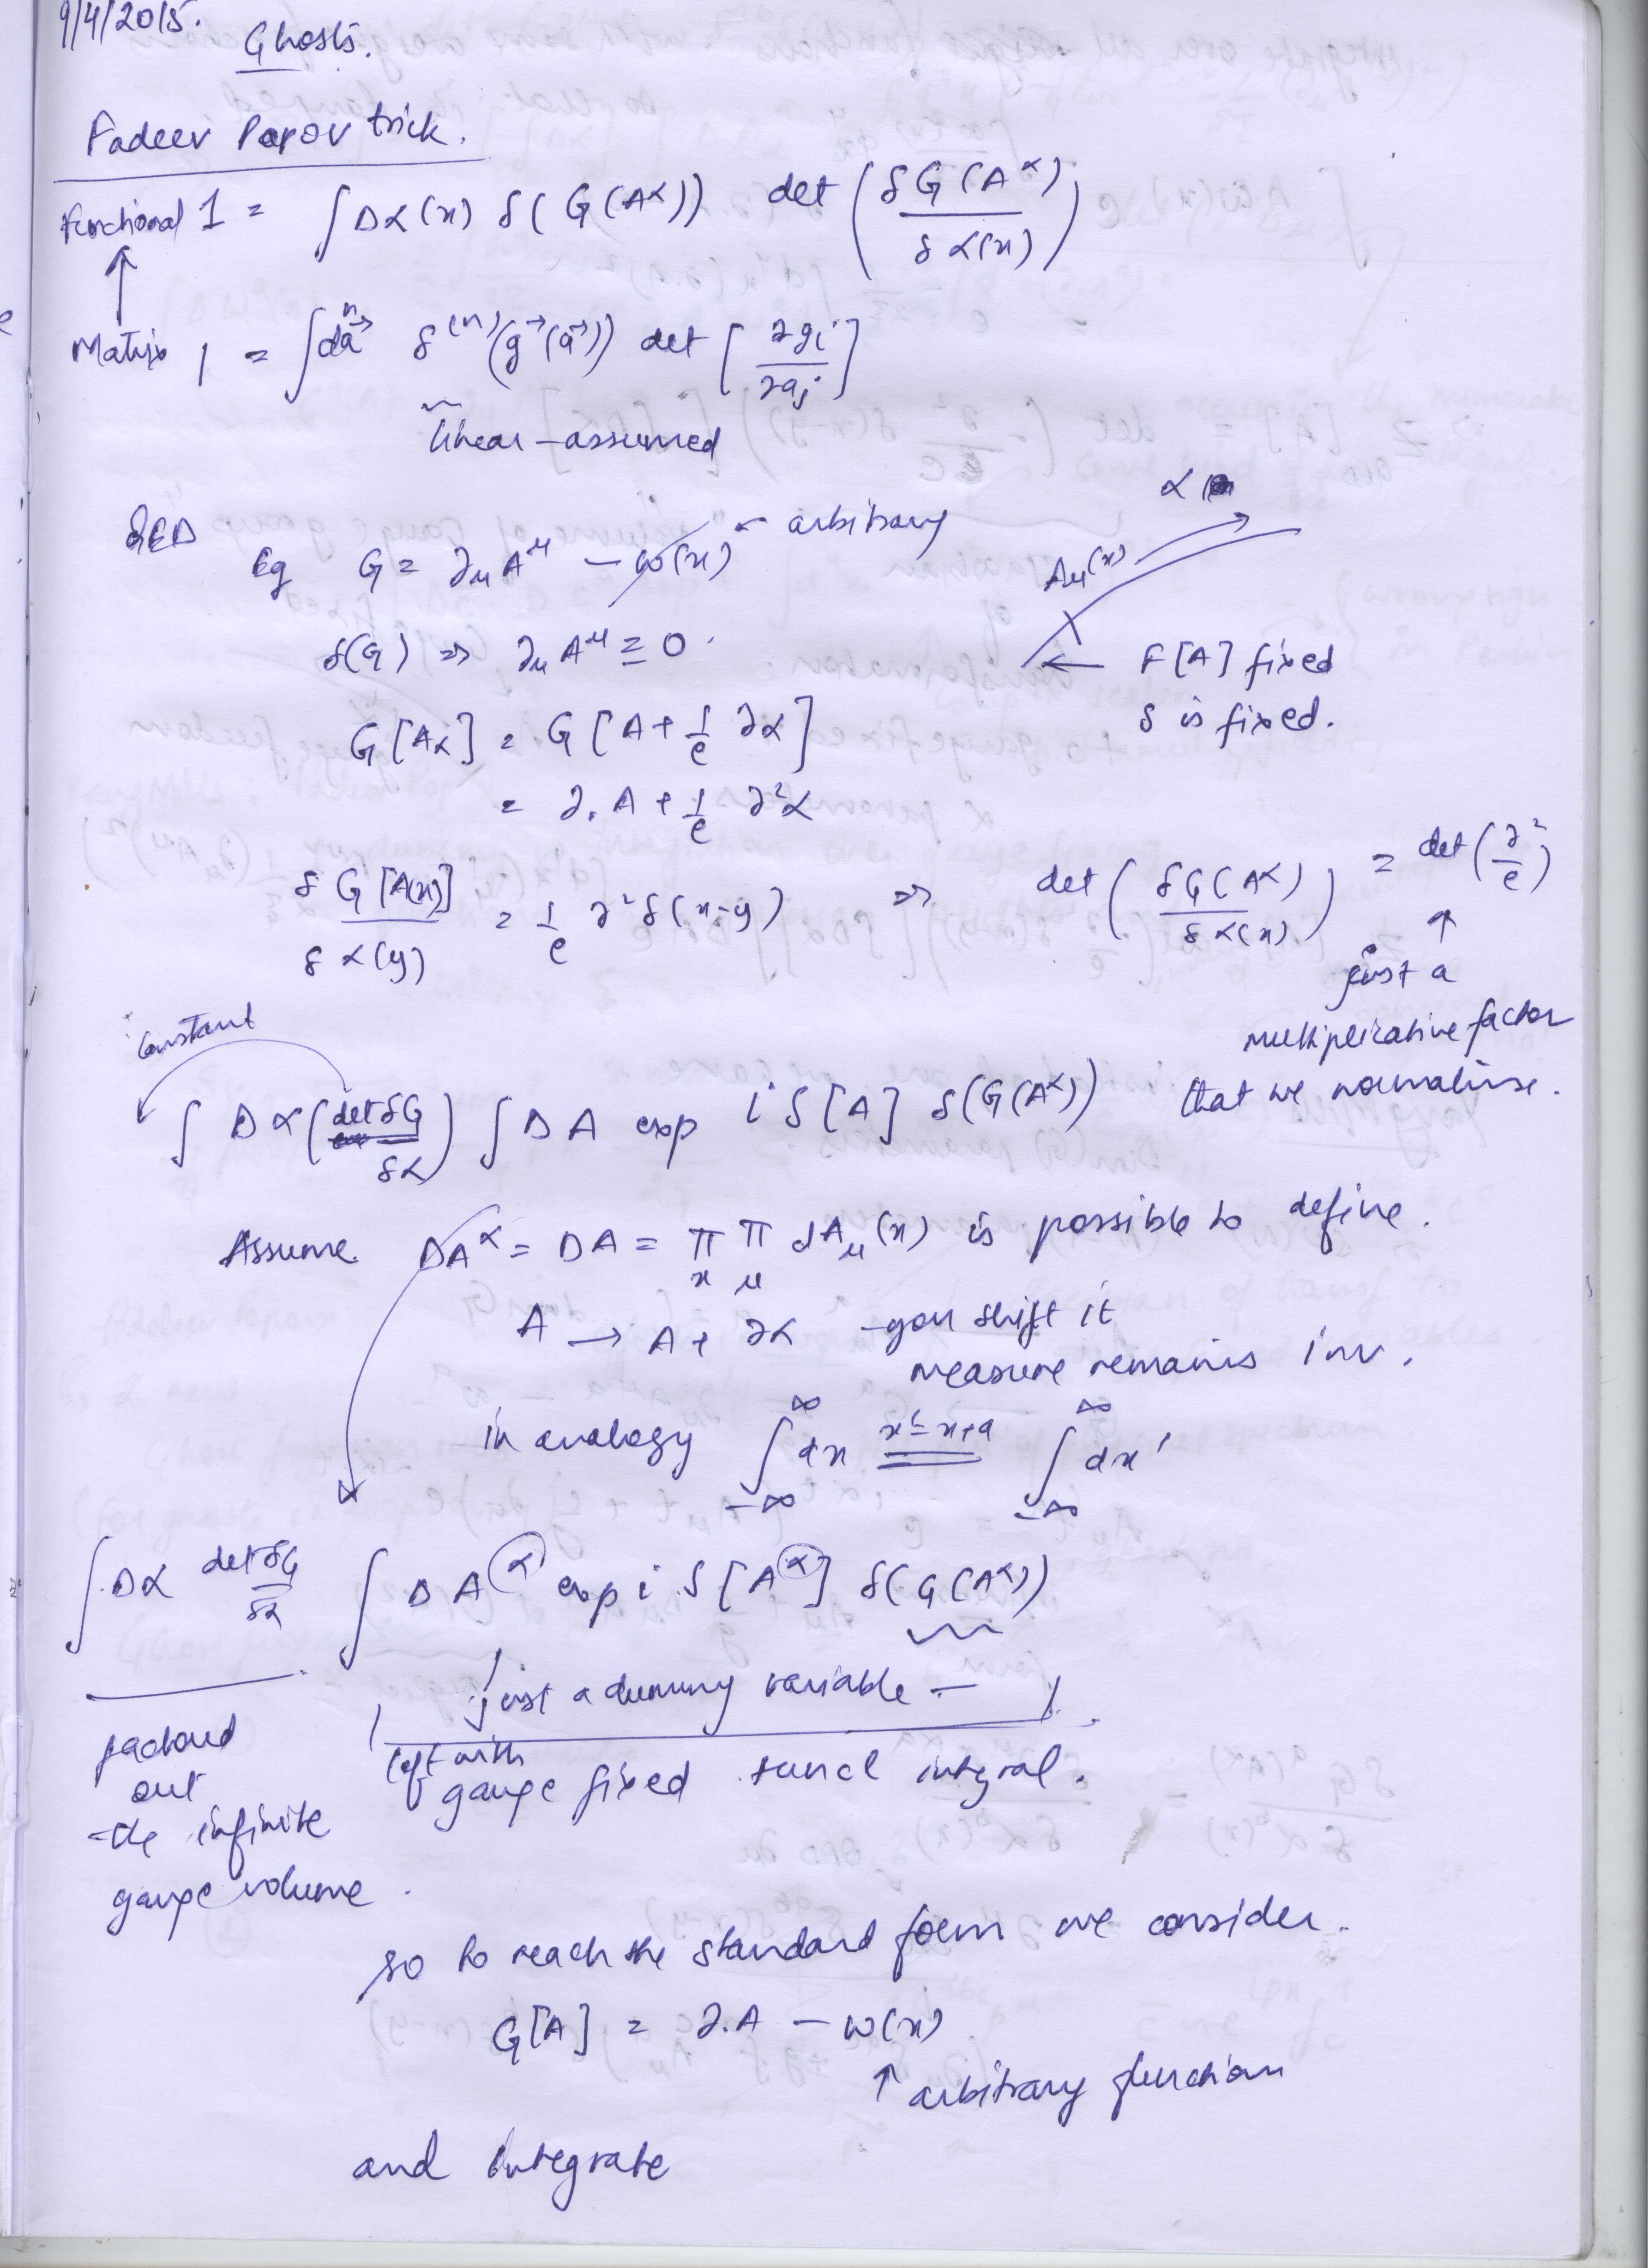 9/4/2015.
Ghosts.
Fadeev Popov trick.
Functional 1 = ∫ Dα(x) δ(G(Aα)) det (δG(A^α) / δα(x))
↑
Matrix 1 = ∫da^n→ δ^(n)(g→(a→)) det [∂gi / ∂aj]
linear - assumed
QED
Eg G = ∂μ A^μ - ω(x) ← arbitrary
α
Aμ(x)
δ(G) => ∂μ A^μ = 0.
← F[A] fixed
S is fixed.
G[Aα] = G[A + 1/e ∂α]
= ∂.A + 1/e ∂²α
δG[A(x)] / δα(y) = 1/e ∂²δ(x-y) => det (δG(A^α) / δα(x)) = det (∂²/e)
↑
just a
multiplicative factor
that we normalise.
constant
∫ Dα (det δG / δα) ∫ DA exp i S[A] δ(G(A^α))
Assume. DA^α = DA = π_x π_μ dAμ(x) is possible to define.
A → A + ∂α -you shift it
measure remains inv.
in analogy ∫_-∞^∞ dx x'=x+a ∫_-∞^∞ dx'
∫Dα det δG / δα ∫ DA^α exp i S[A^α] δ(G(A^α))
just a dummy variable -
factored
out
the infinite
gauge volume.
left with
gauge fixed funcl integral.
so to reach the standard form we consider.
G[A] = ∂.A - ω(x)
↑ arbitrary function
and integrate